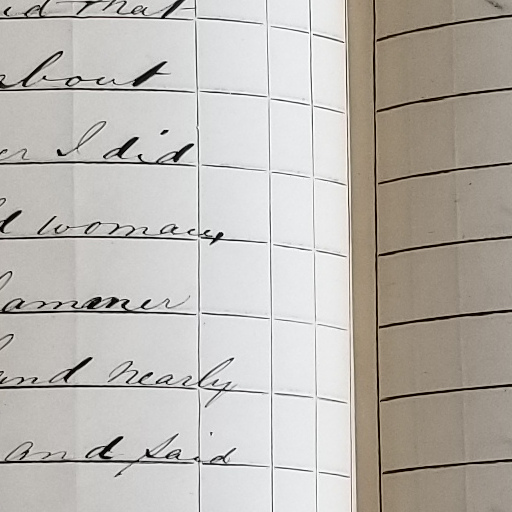 that
about
I did
woman,
hammer
and nearly
and said